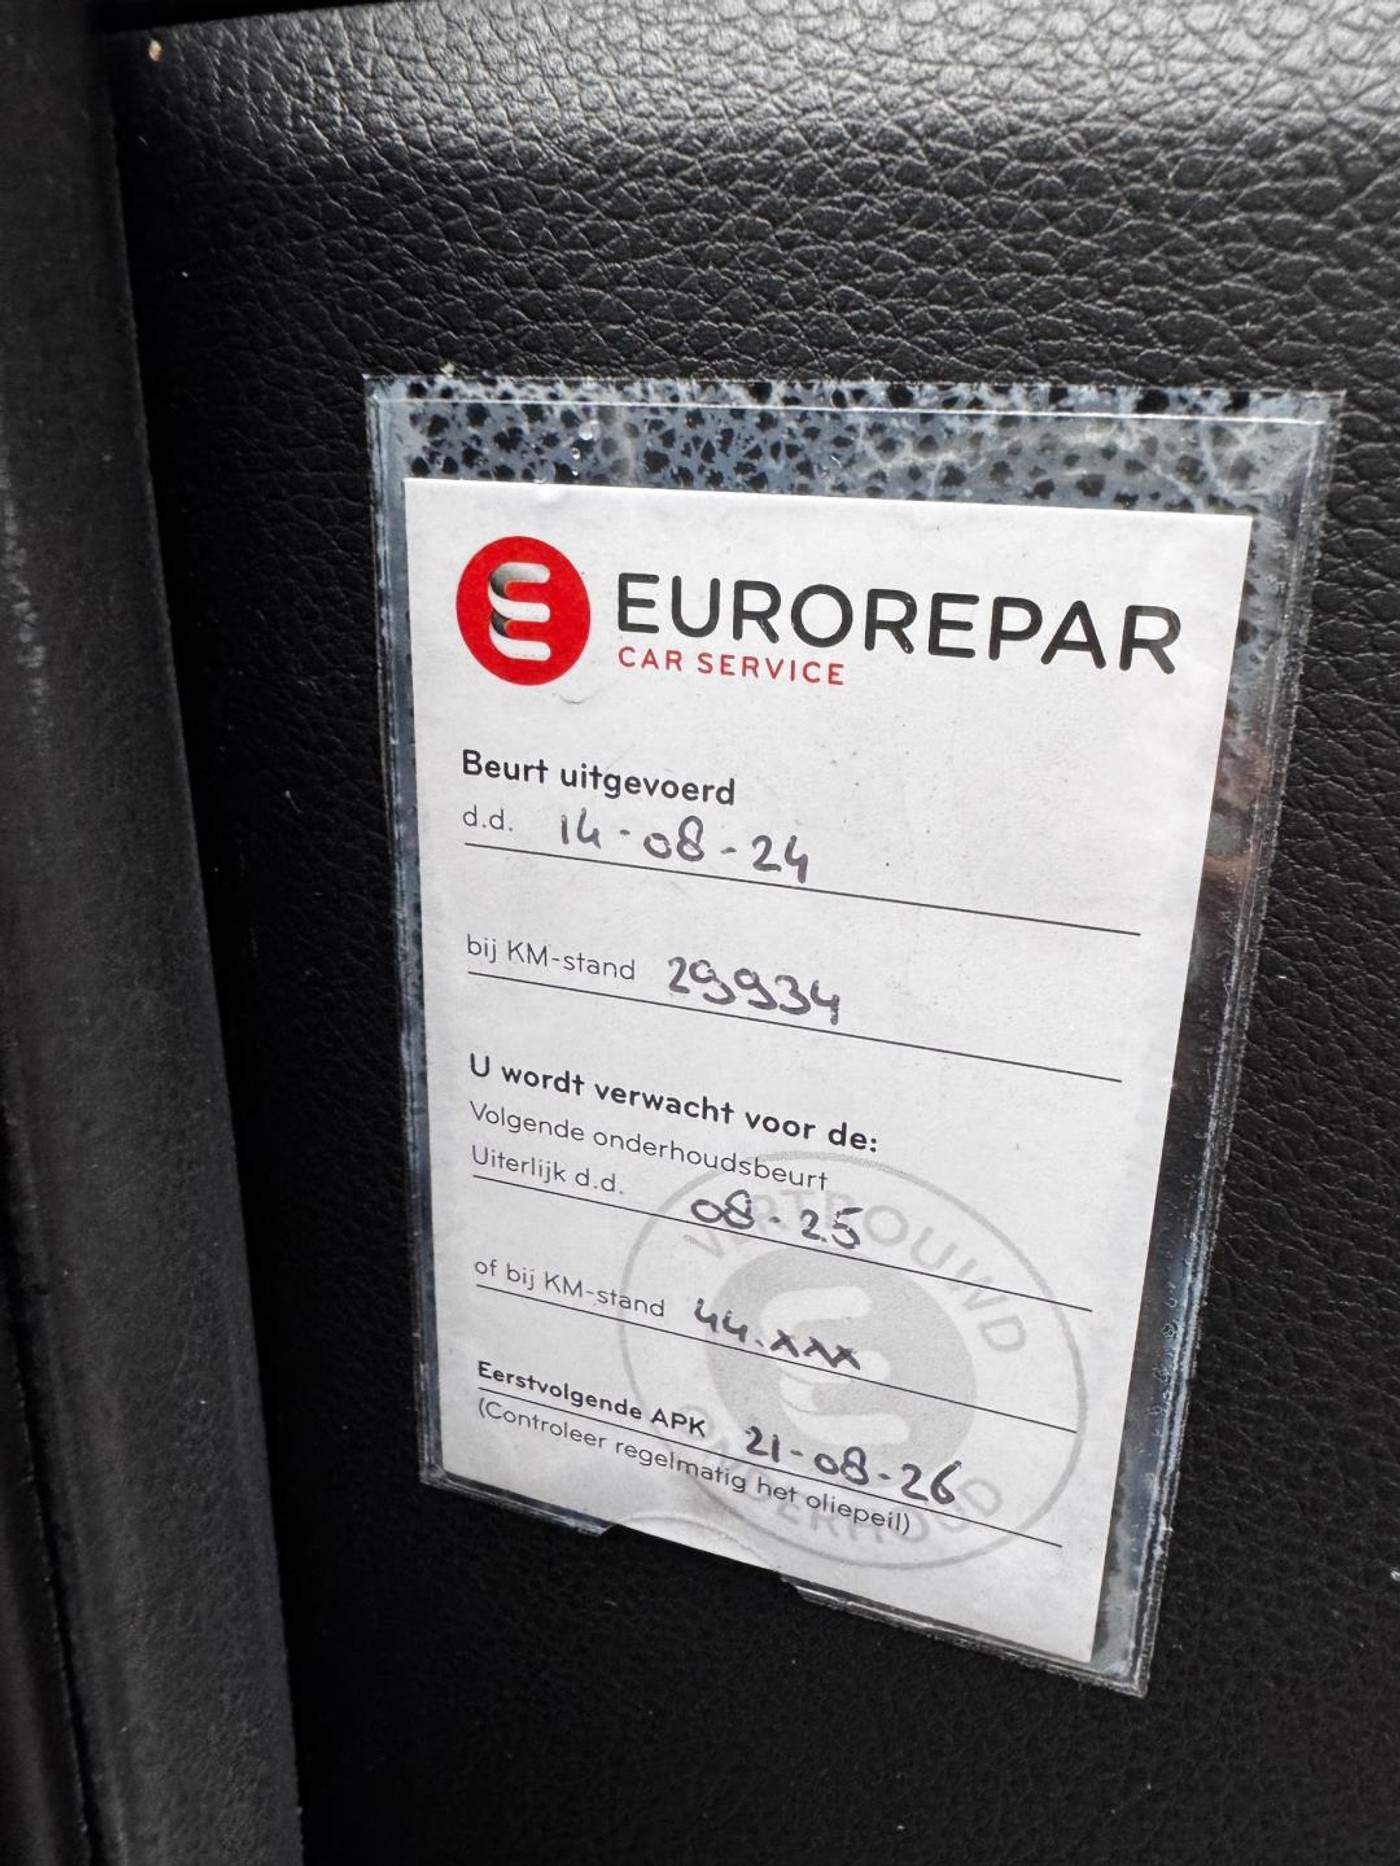 EUROREPAR
CAR SERVICE
Beurt uitgevoerd
d.d. 14-08-24
bij KM-stand 29934
U wordt verwacht voor de:
Volgende onderhoudsbeurt
Uiterlijk d.d. 08-25
of bij KM-stand 44.xxx
Eerstvolgende APK 21-08-26
(Controleer regelmatig het oliepeil)
VERTROUWD
ONDERHOUD